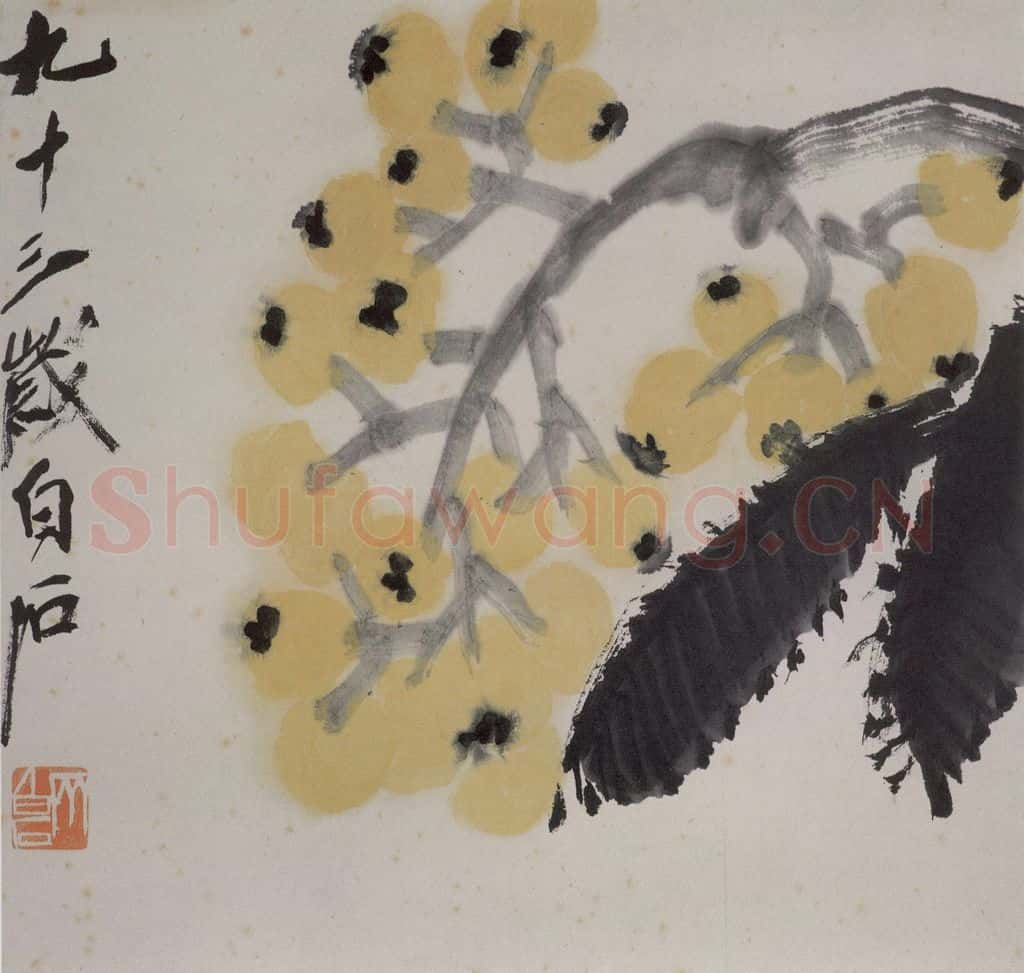 九十三歲白石
Shufawang.CN